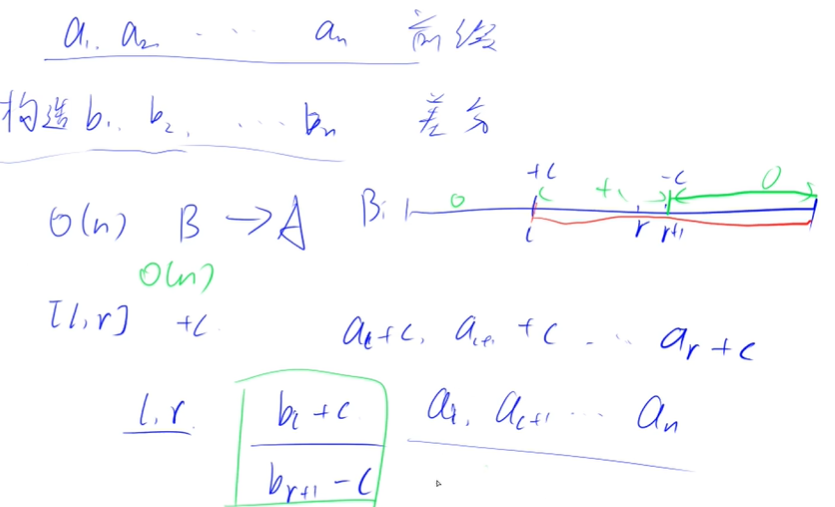 a₁, a₂ ...... aₙ 前缀
构造 b₁, b₂, ...... bₙ 差分
+c +c -c 0
O(n) B → A B: 0
l r r+1
O(n)
[l, r] +c aₗ+c, aₗ₊₁+c ...... aᵣ+c
l, r bₗ+c aₗ, aₗ₊₁ ...... aₙ
bᵣ₊₁-c